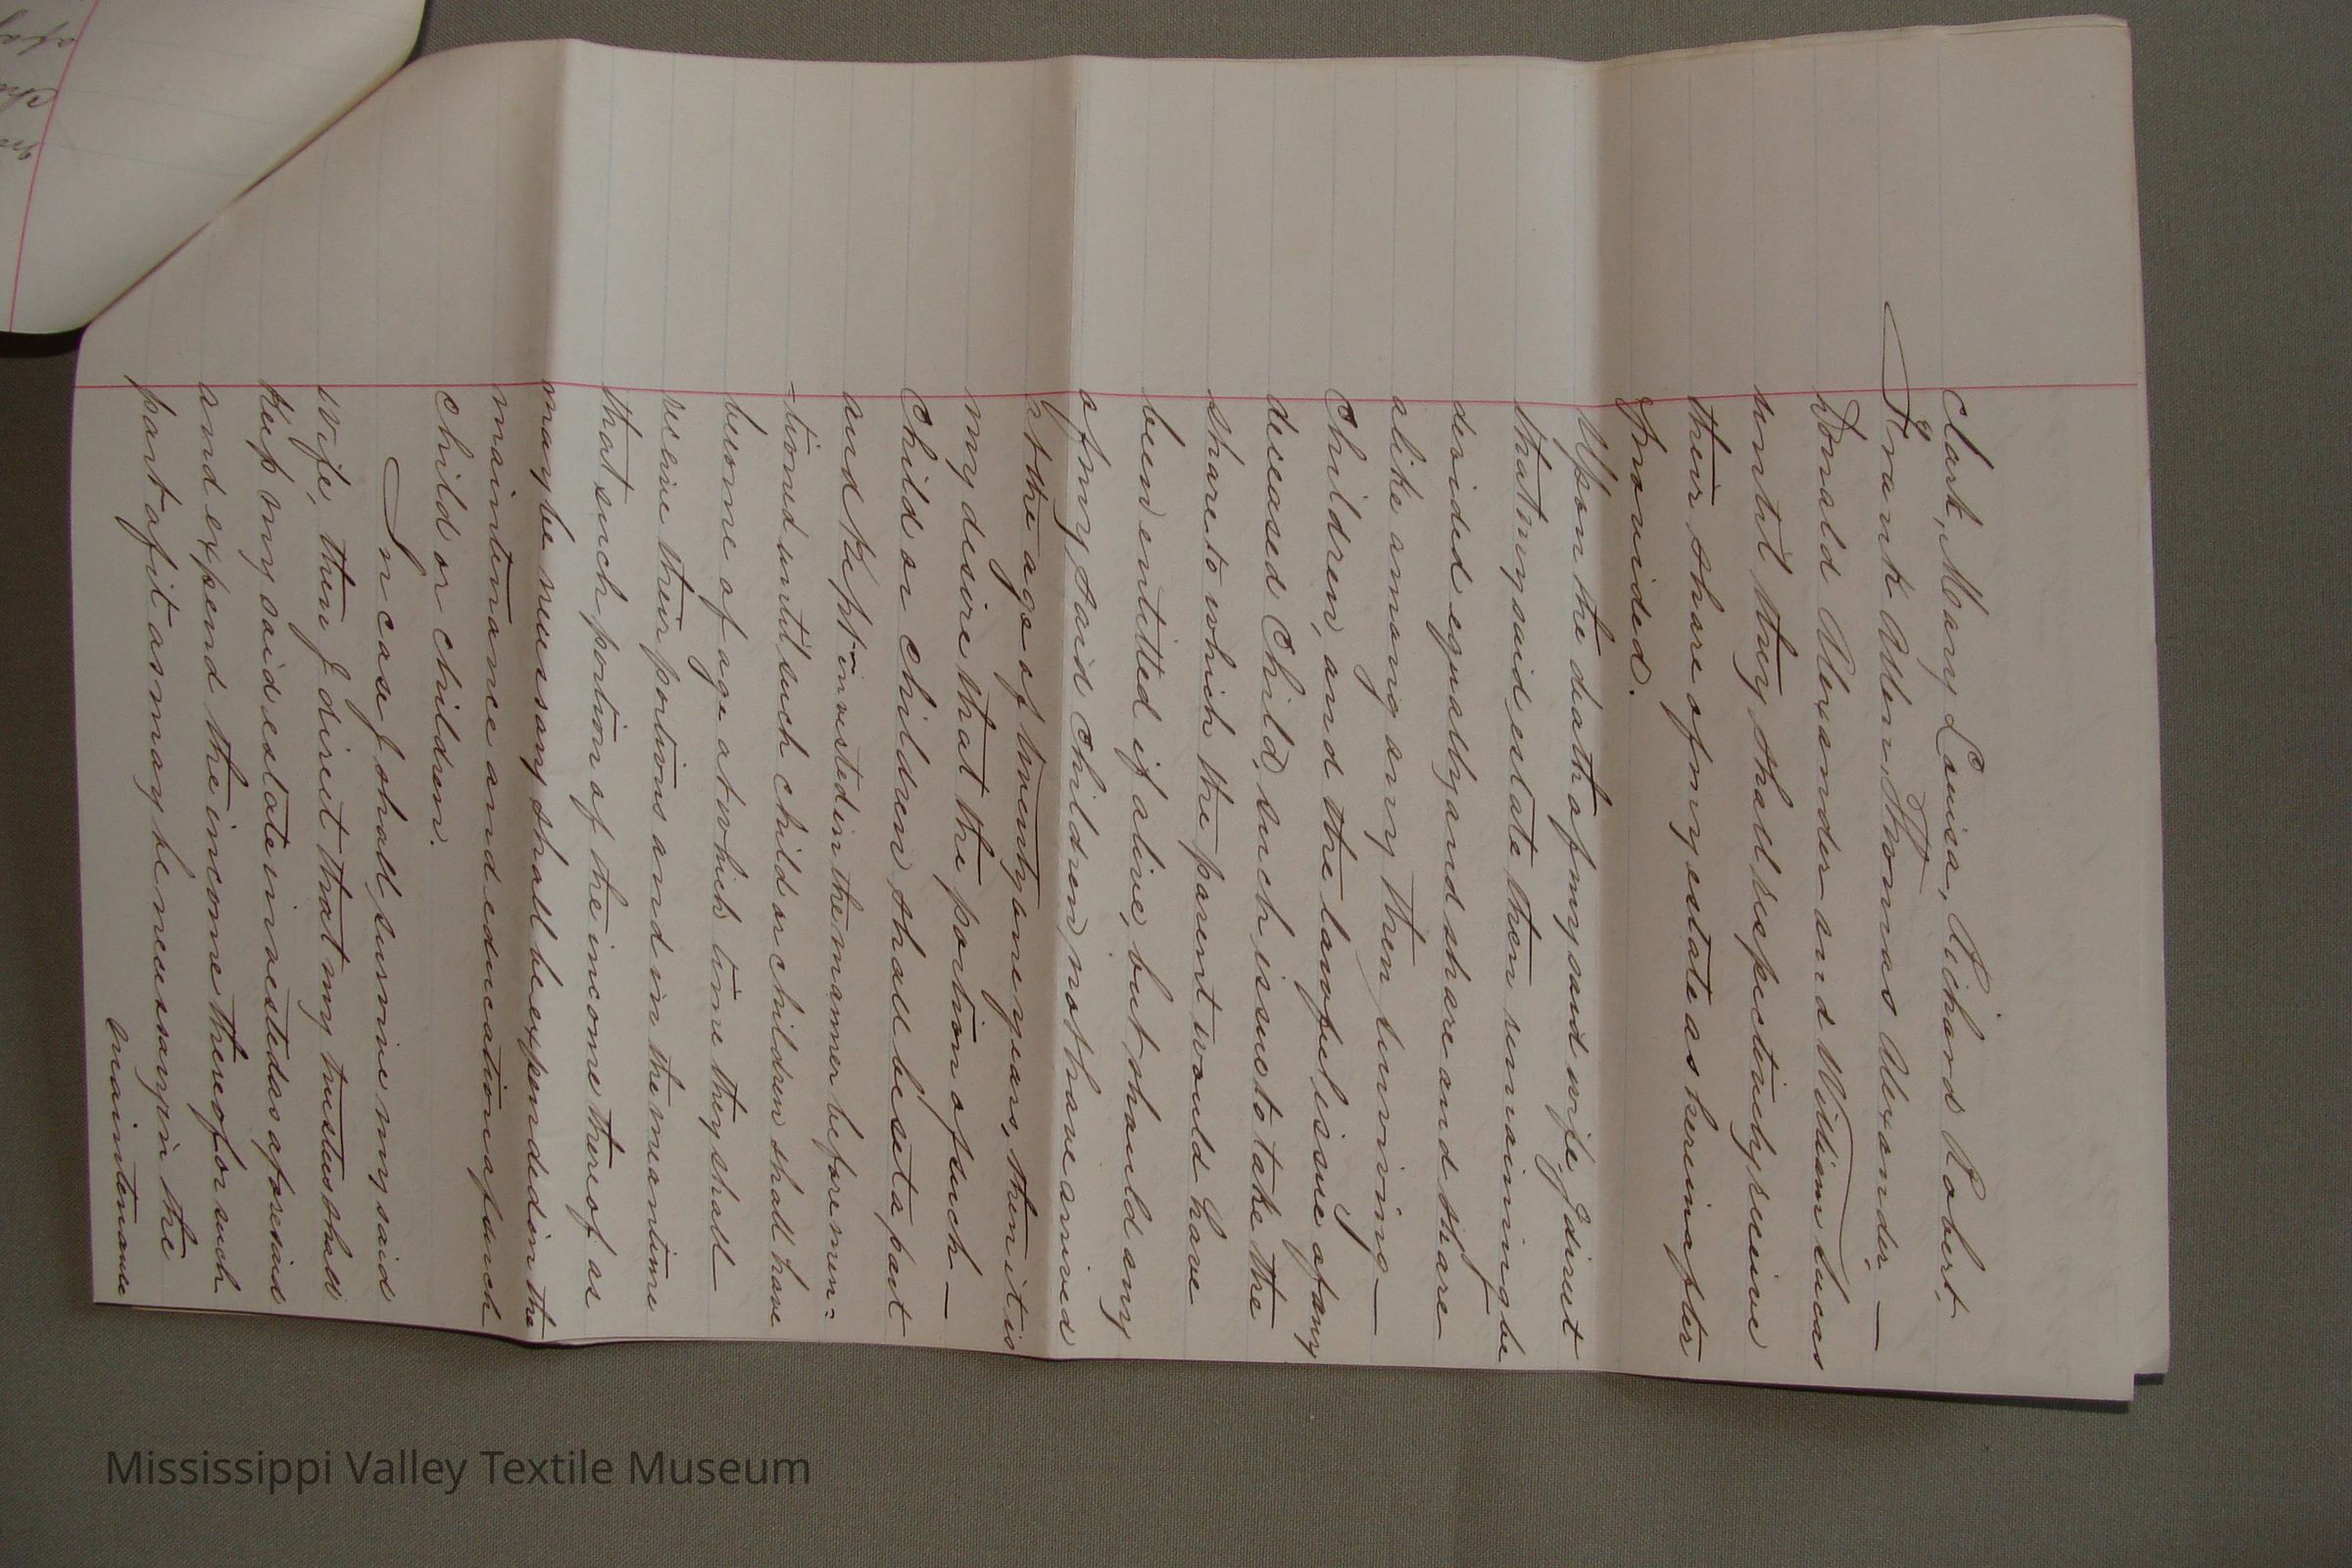 Clark, Mary Louisa, Richard Robert,
Frank Allen, Thomas Alexander, —
Donald Alexander and William Lucas
until they shall respectively receive
their share of my estate as hereinafter
provided.
Upon the death of my said wife, I direct
that my said estate then remaining be
devided equally and share and share
alike among any then surviving —
Children, and the lawful issue of any
deceased Child, such issue to take the
share to which the parent would have
been entitled if alive, but should any
of my said Children not have arrived
at the age of twenty one years, then it is
my desire that the portion of such —
Child or children shall be set apart
and kept invested in the manner before men=
-tioned until such child or children shall have
become of age at which time they shall
receive their portions and in the meantime
that such portion of the income thereof as
may be necessary shall be expended in the
maintenance and education of such
child or children.
In case I shall survive my said
wife, then I direct that my trustees shall
keep my said estate invested as aforesaid
and expend the income thereof or such
part of it as may be necessary in the
maintenance
Mississippi Valley Textile Museum